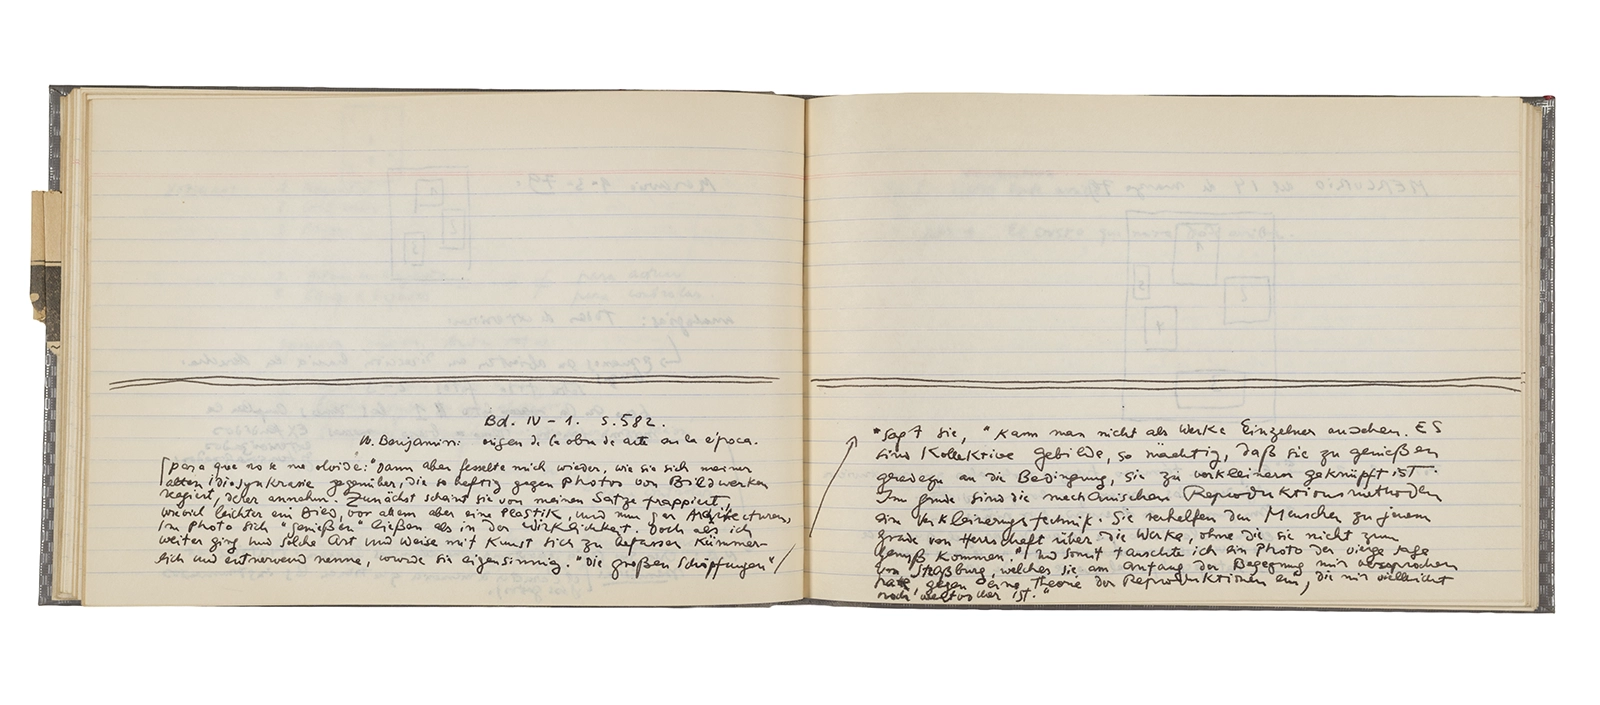 Bd. IV - 1. S. 582.
W. Benjamin: origen de la obra de arte en la época.
[para que no se me olvide: "Dann aber fesselte mich wieder, wie sie sich meiner
alten Idiosynkrasie gegenüber, die so heftig gegen Photos von Bildwerken
reagiert, derer annahm. Zunächst scheint sie von meinen Satze frappiert,
wieviel leichter ein Bild, vor allem aber eine Plastik, und nun gar Architekturen,
im Photo sich "genießen" ließen als in der Wirklichkeit. Doch als ich
weiter ging und solche Art und Weise mit Kunst sich zu befassen kümmer-
lich und entnervend nenne, wurde sie eigensinnig. "Die großen Schöpfungen"
"sagt sie, "kann man nicht als Werke Einzelner ansehen. ES
sind Kollektive Gebilde, so mächtig, daß sie zu genießen
geradezu an die Bedingung, sie zu verkleinern geknüpft ist.
Im grunde sind die mechanischen Reproduktionsmethoden
ein Verkleinerungstechnik. Sie verhelfen den Menschen zu jenem
grade von Herrschaft über die Werke, ohne die sie nicht zum
genuß kommen." Und somit tauschte ich ein Photo der vierge sage
von Straßburg, welches sie am Anfang der Begegnung mir versprochen
hate, gegen eine Theorie der Reproduktionen ein, die mir vielleicht
noch wertvoller ist."
MERCURIO del 14 de marzo
Mercurio 9-5-79.
1
2
3